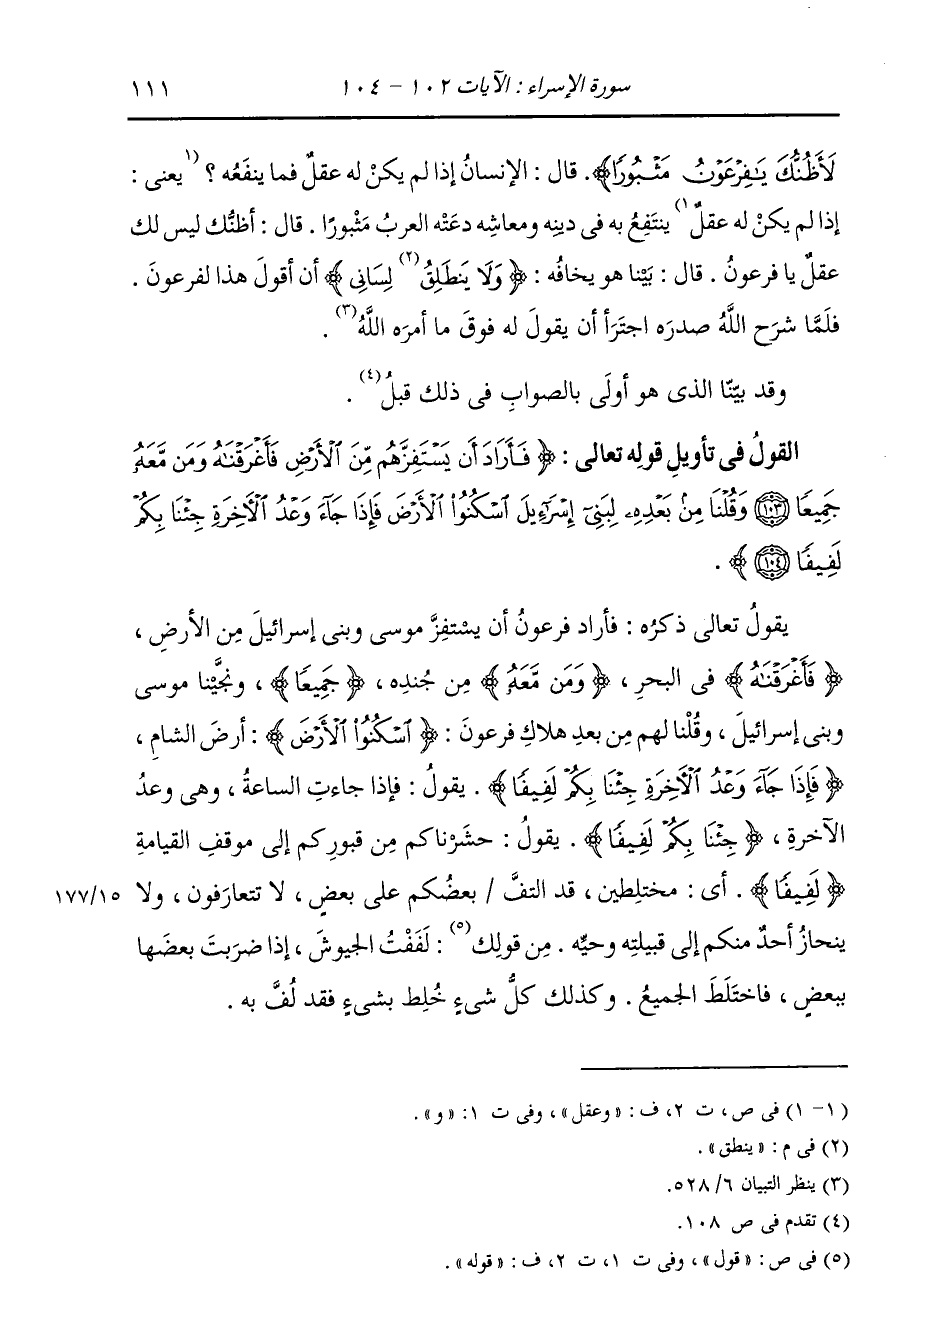 سورة الإسراء : الآيات ١٠٢ - ١٠٤ ١١١
لَأَظُنُّكَ يَٰفِرْعَوْنُ مَثْبُورًا﴾. قال : الإنسانُ إذا لم يكنْ له عقلٌ فما ينفَعُه ؟ (١يعنى :
إذا لم يكنْ له عقلٌ١) ينتَفِعُ به فى دينِه ومعاشِه دعَتْه العربُ مَثْبورًا . قال : أظنُّك ليس لك
عقلٌ يا فرعونُ . قال : بَيْنا هو يخافُه : ﴿ وَلَا يَنطَلِقُ(٢) لِسَانِى ﴾ أن أقولَ هذا لفرعونَ .
فلَمَّا شرَح اللَّهُ صدرَه اجتَرَأ أن يقولَ له فوقَ ما أمرَه اللَّهُ(٣) .
وقد بيّنّا الذى هو أولَى بالصوابِ فى ذلك قبلُ(٤) .
القولُ فى تأويلِ قولِه تعالى : ﴿ فَأَرَادَ أَن يَسْتَفِزَّهُم مِّنَ ٱلْأَرْضِ فَأَغْرَقْنَٰهُ وَمَن مَّعَهُۥ
جَمِيعًا ١٠٣ وَقُلْنَا مِنۢ بَعْدِهِۦ لِبَنِىٓ إِسْرَٰٓءِيلَ ٱسْكُنُوا۟ ٱلْأَرْضَ فَإِذَا جَآءَ وَعْدُ ٱلْأٓخِرَةِ جِئْنَا بِكُمْ
لَفِيفًا ١٠٤ ﴾ .
يقولُ تعالى ذكرُه : فأراد فرعونُ أن يسْتفِزَّ موسى وبنى إسرائيلَ مِن الأرضِ ،
﴿ فَأَغْرَقْنَٰهُ ﴾ فى البحرِ ، ﴿ وَمَن مَّعَهُۥ ﴾ مِن جُندِه ، ﴿ جَمِيعًا ﴾ ، ونجَّيْنا موسى
وبنى إسرائيلَ ، وقُلْنا لهم مِن بعدِ هلاكِ فرعونَ : ﴿ ٱسْكُنُوا۟ ٱلْأَرْضَ ﴾ : أرضَ الشامِ ،
﴿ فَإِذَا جَآءَ وَعْدُ ٱلْأٓخِرَةِ جِئْنَا بِكُمْ لَفِيفًا ﴾ . يقولُ : فإذا جاءتِ الساعةُ ، وهى وعدُ
الآخرةِ ، ﴿ جِئْنَا بِكُمْ لَفِيفًا ﴾ . يقولُ : حشَرْناكم مِن قبورِكم إلى موقفِ القيامةِ
﴿ لَفِيفًا ﴾ . أى : مختلِطين ، قد التفَّ / بعضُكم على بعضٍ ، لا تتعارَفون ، ولا ١٧٧/١٥
ينحازُ أحدٌ منكم إلى قبيلتِه وحيِّه . مِن قولِك(٥) : لَفَفْتُ الجيوشَ ، إذا ضرَبتَ بعضَها
ببعضٍ ، فاختَلَطَ الجميعُ . وكذلك كلُّ شىءٍ خُلِط بشىءٍ فقد لُفَّ به .
(١ - ١) فى ص، ت ٢، ف : « وعقل » ، وفى ت ١ : « و » .
(٢) فى م : « ينطق » .
(٣) ينظر التبيان ٦/ ٥٢٨.
(٤) تقدم فى ص ١٠٨.
(٥) فى ص : « قول » ، وفى ت ١، ت ٢، ف : « قوله » .